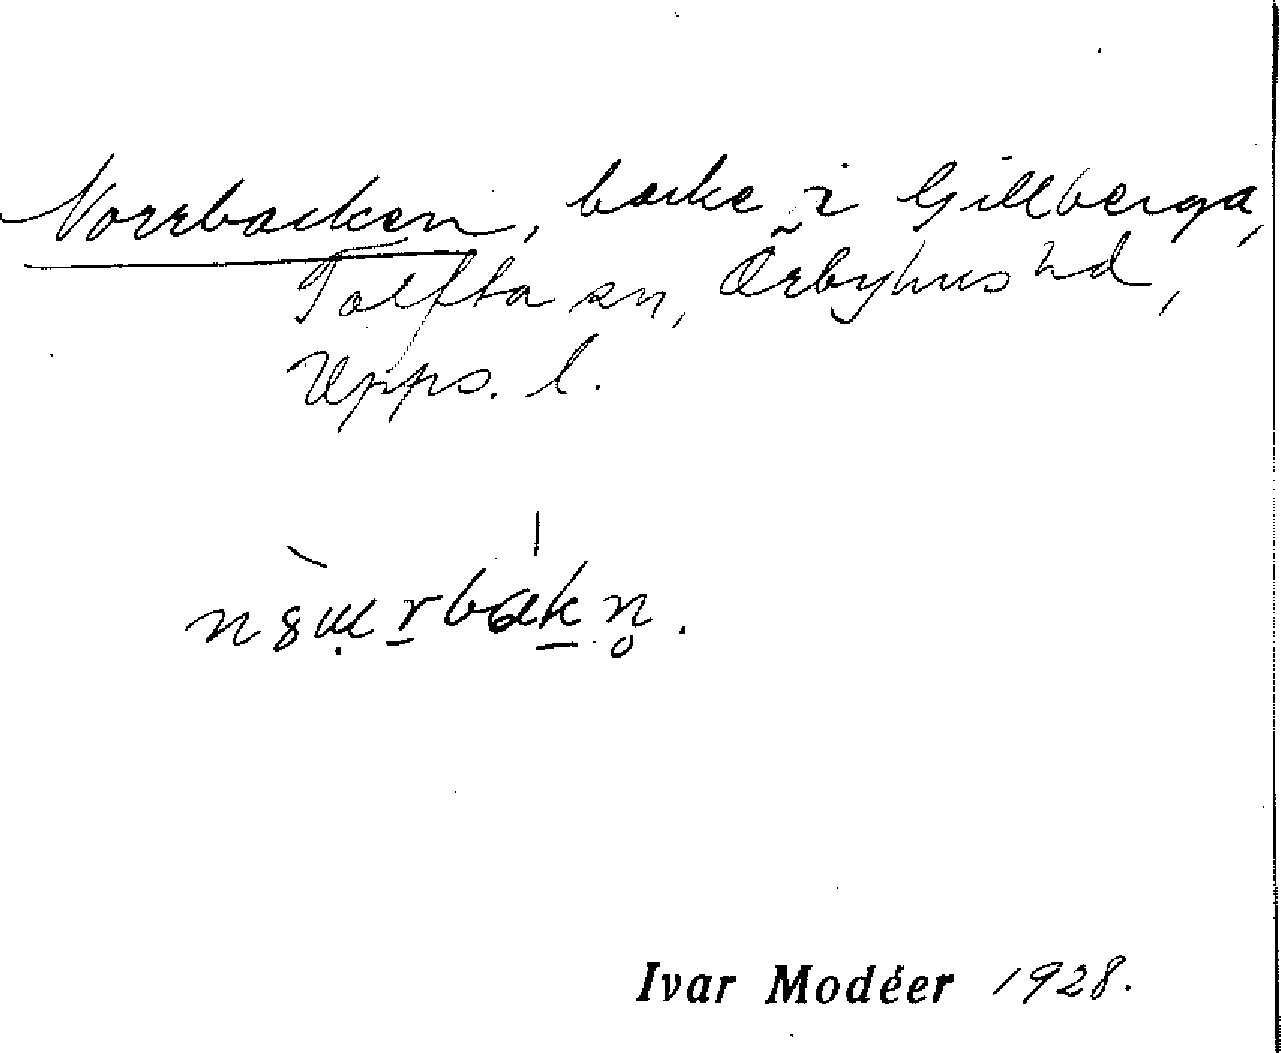 Norrbacken, backe i Gillberga,
Tolfta sn, Örbyhus hd,
Upps. l.
Ivar Modéer 1928.